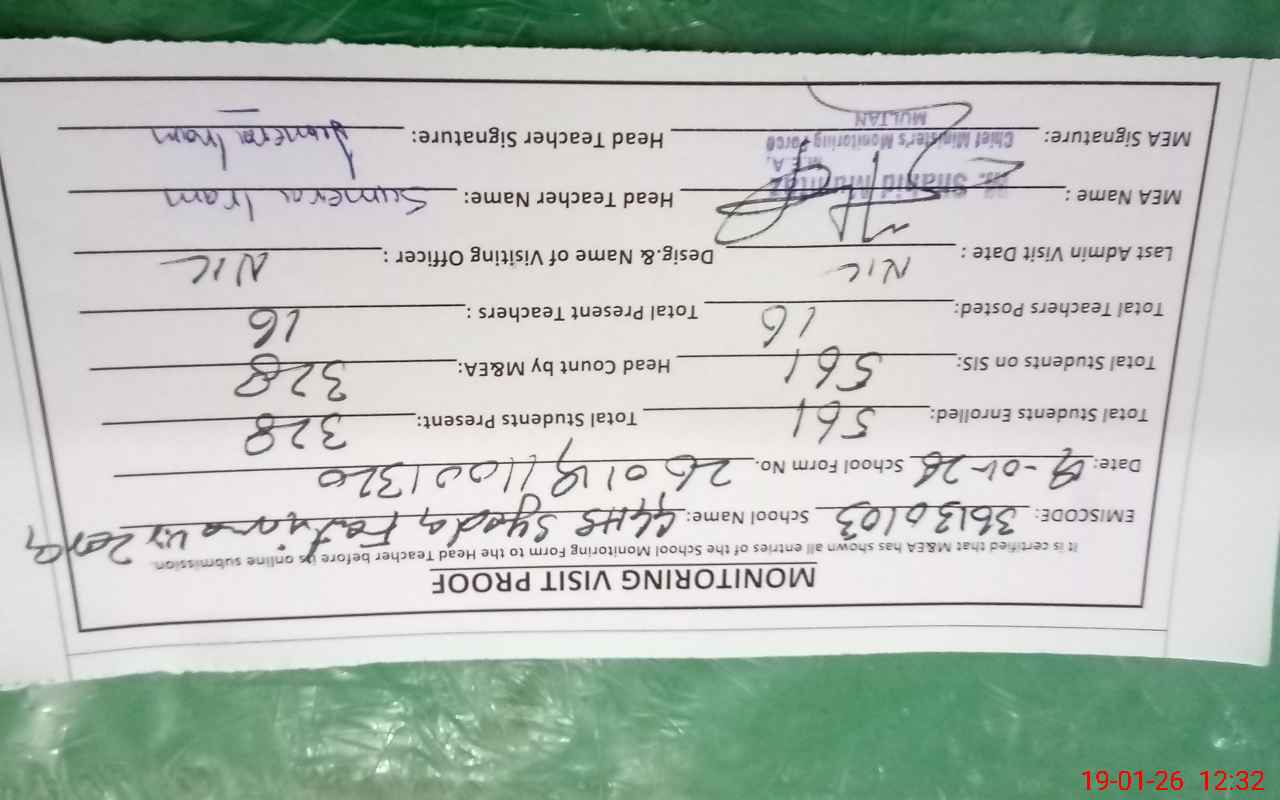 MONITORING VISIT PROOF
It is certified that M&EA has shown all entries of the School Monitoring Form to the Head Teacher before its online submission.
EMISCODE: 36130103 School Name: GGHS Syeda Fatima uz Zahra
Date: 19-01-26 School Form No. 2601191001320
Total Students Enrolled: 561 Total Students Present: 328
Total Students on SIS: 561 Head Count by M&EA: 328
Total Teachers Posted: 16 Total Present Teachers : 16
Last Admin Visit Date : NIL Desig.& Name of Visiting Officer : NIL
MEA Name : Shahid Mumtaz Head Teacher Name: Sumera Iram
M.E.A,
MEA Signature: Chief Minister's Monitoring Force Head Teacher Signature: Sumera Iram
MULTAN
19-01-26 12:32